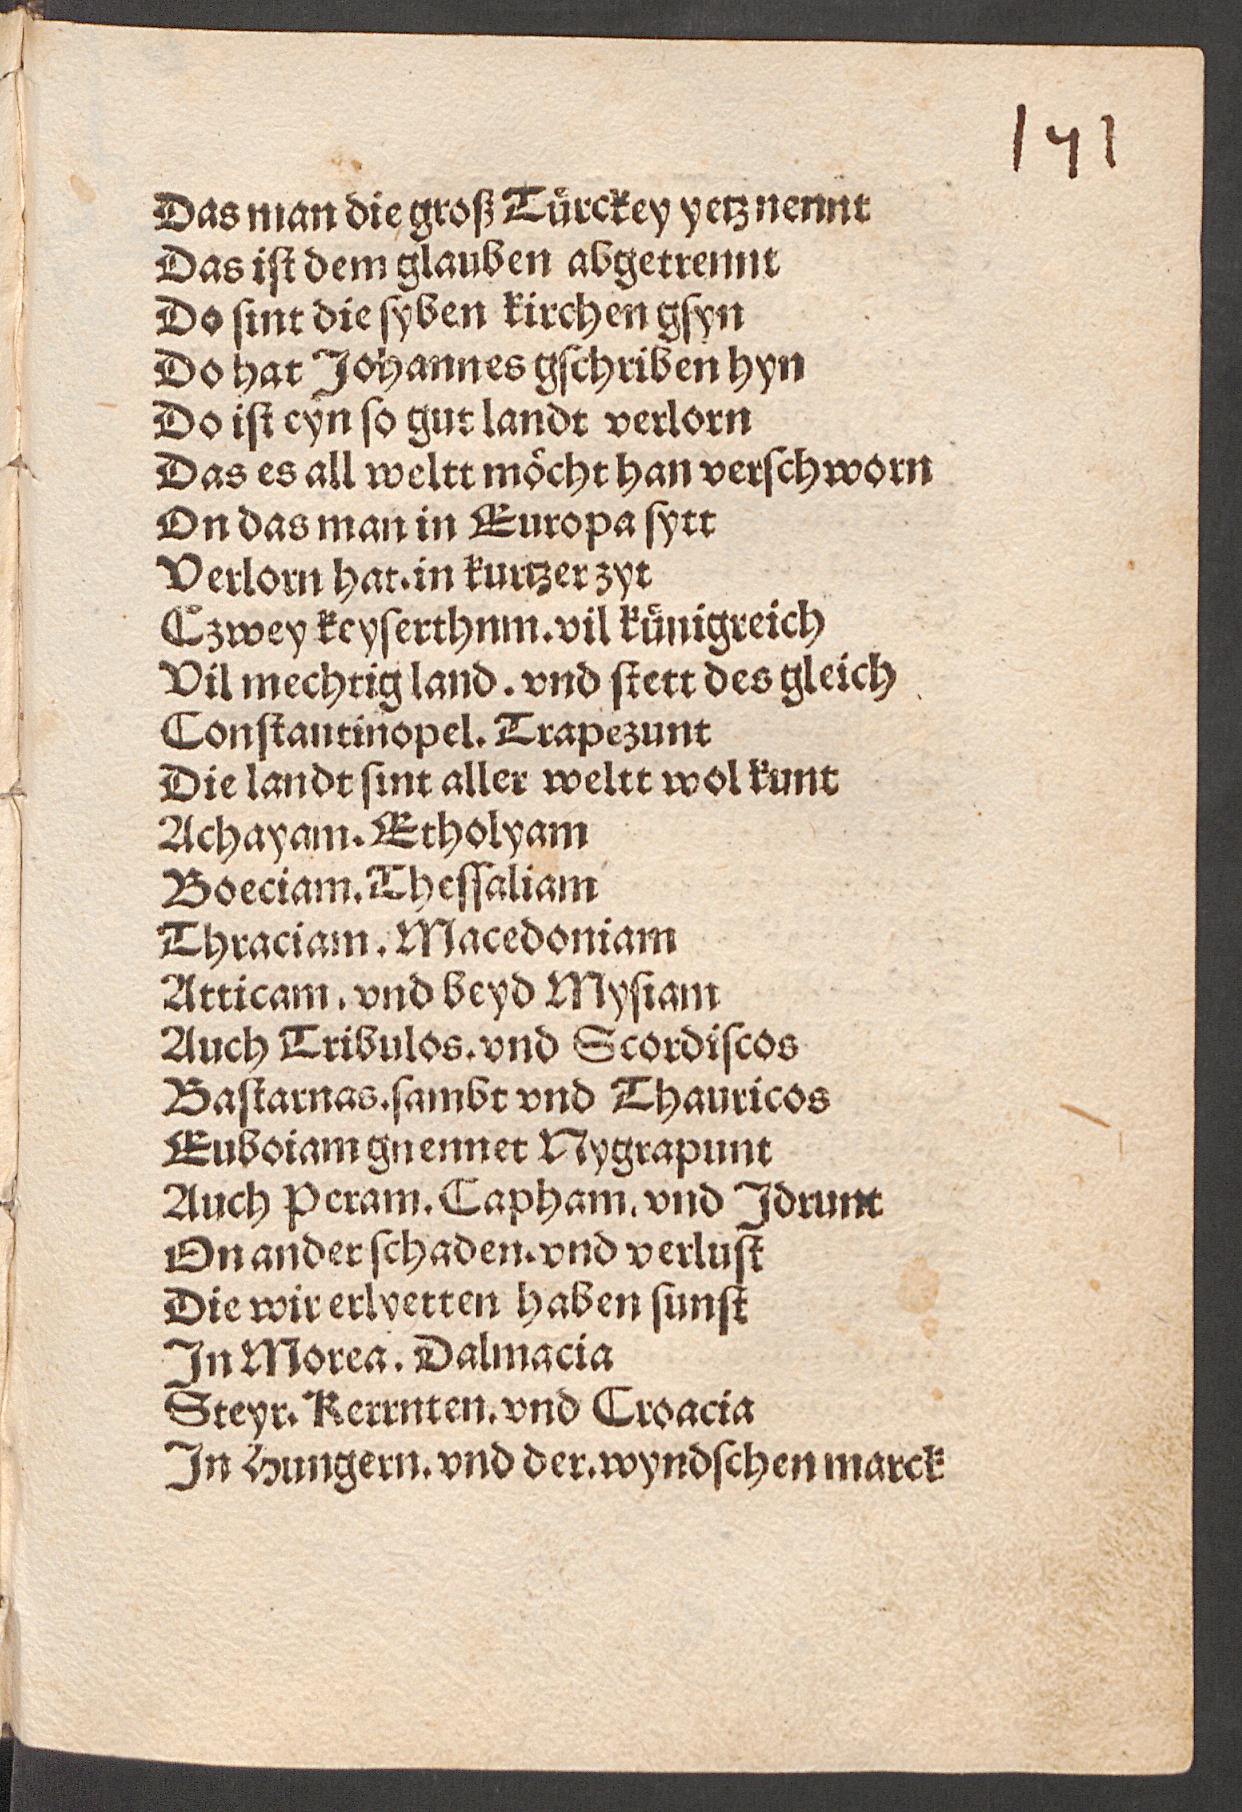 141
Das man die groß Türckey yetz nennt
Das ist dem glauben abgetrennt
Do sint die syben kirchen gsyn
Do hat Johannes gschriben hyn
Do ist eyn so gut landt verlorn
Das es all weltt möcht han verschworn
On das man in Europa sytt
Verlorn hat. in kurtzer zyt
Czwey keyserthnm. vil künigreich
Vil mechtig land. vnd stett des gleich
Constantinopel. Trapezunt
Die landt sint aller weltt wol kunt
Achayam. Etholyam
Boeciam. Thessaliam
Thraciam. Macedoniam
Atticam. vnd beyd Mysiam
Auch Tribulos. vnd Scordiscos
Bastarnas. sambt vnd Thauricos
Euboiam gnennet Nygrapunt
Auch Peram. Capham. vnd Jdrunt
On ander schaden. vnd verlust
Die wir erlvetten haben sunst
Jn Morea. Dalmacia
Steyr. Kerrnten. vnd Croacia
Jn Hungern. vnd der. wyndschen marck